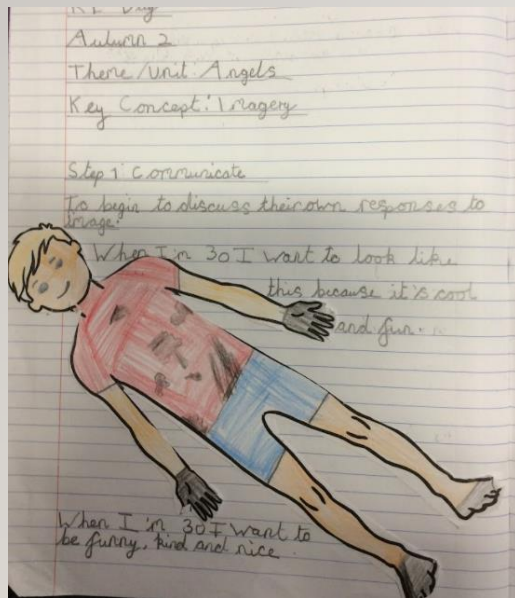 RE Day
Autumn 2
Theme/Unit: Angels
Key Concept: Imagery
Step 1: Communicate
To begin to discuss their own responses to
image.
When I'm 30 I want to look like
this because it's cool
and fun.
When I'm 30 I want to
be funny, kind and nice.